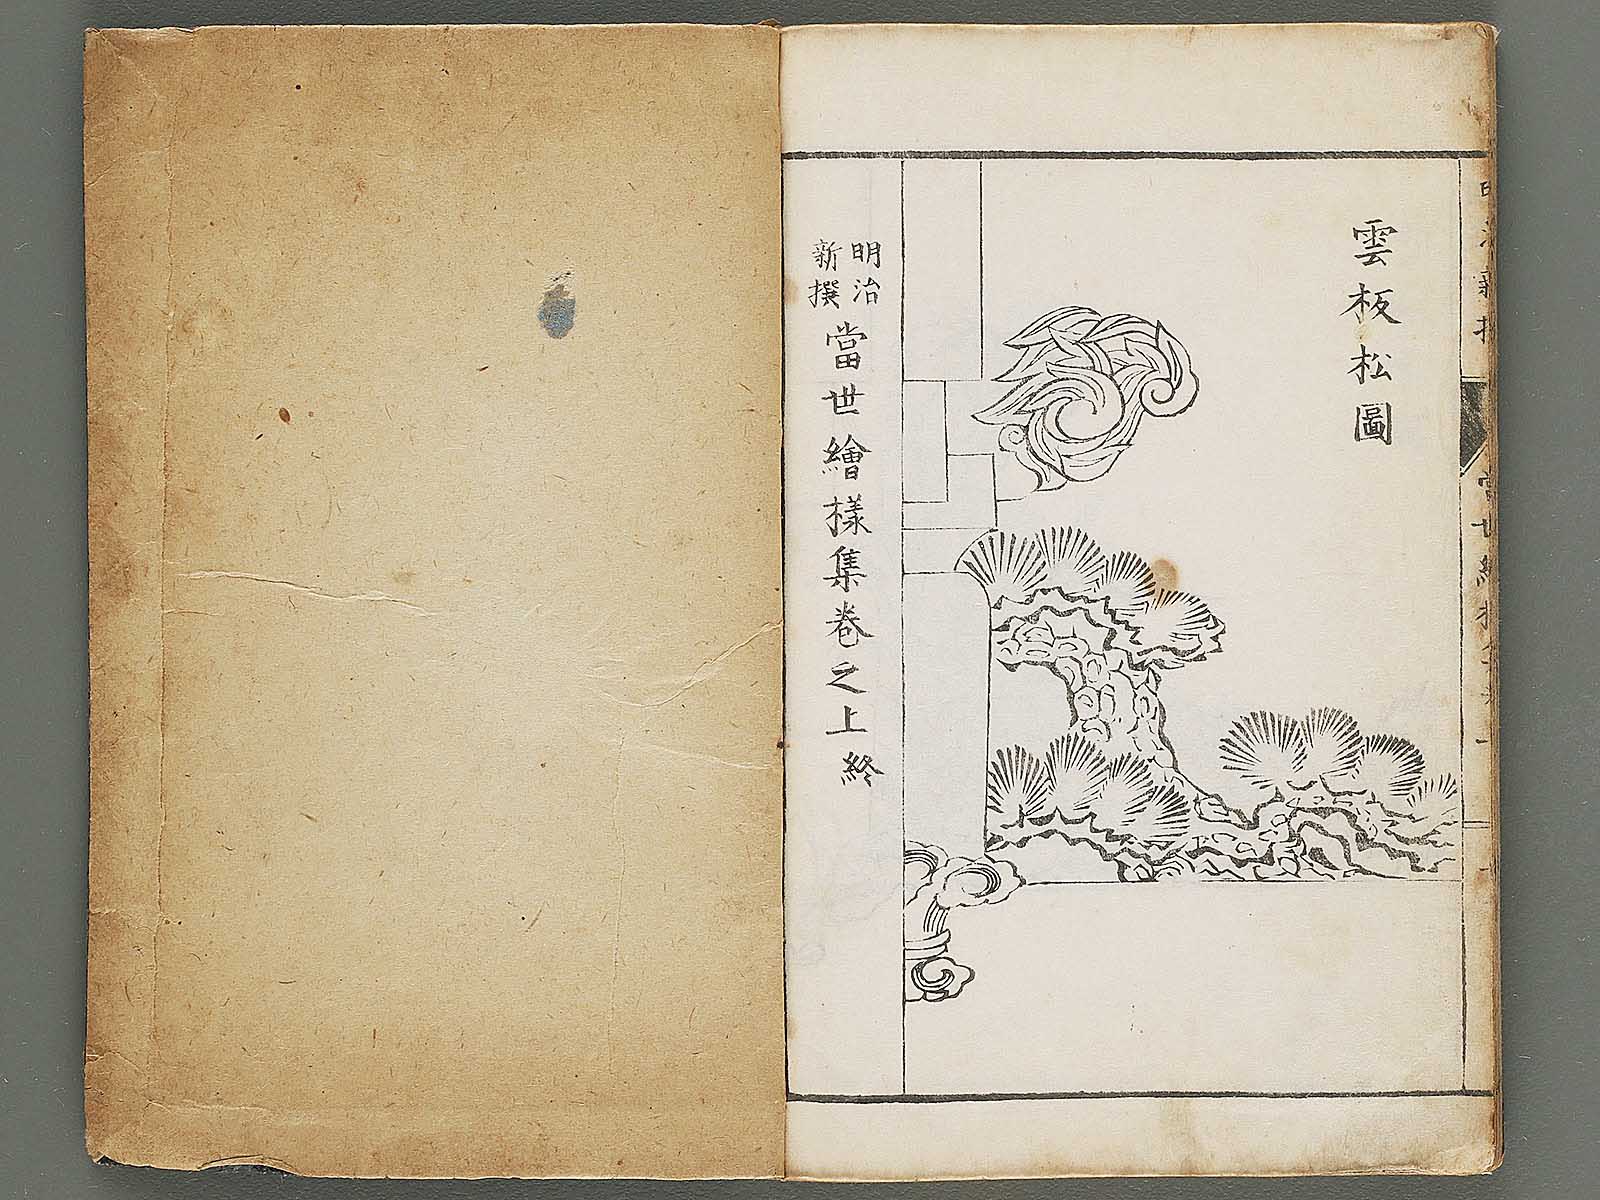 雲板松圖
明治
新撰
當世繪樣集卷之上終